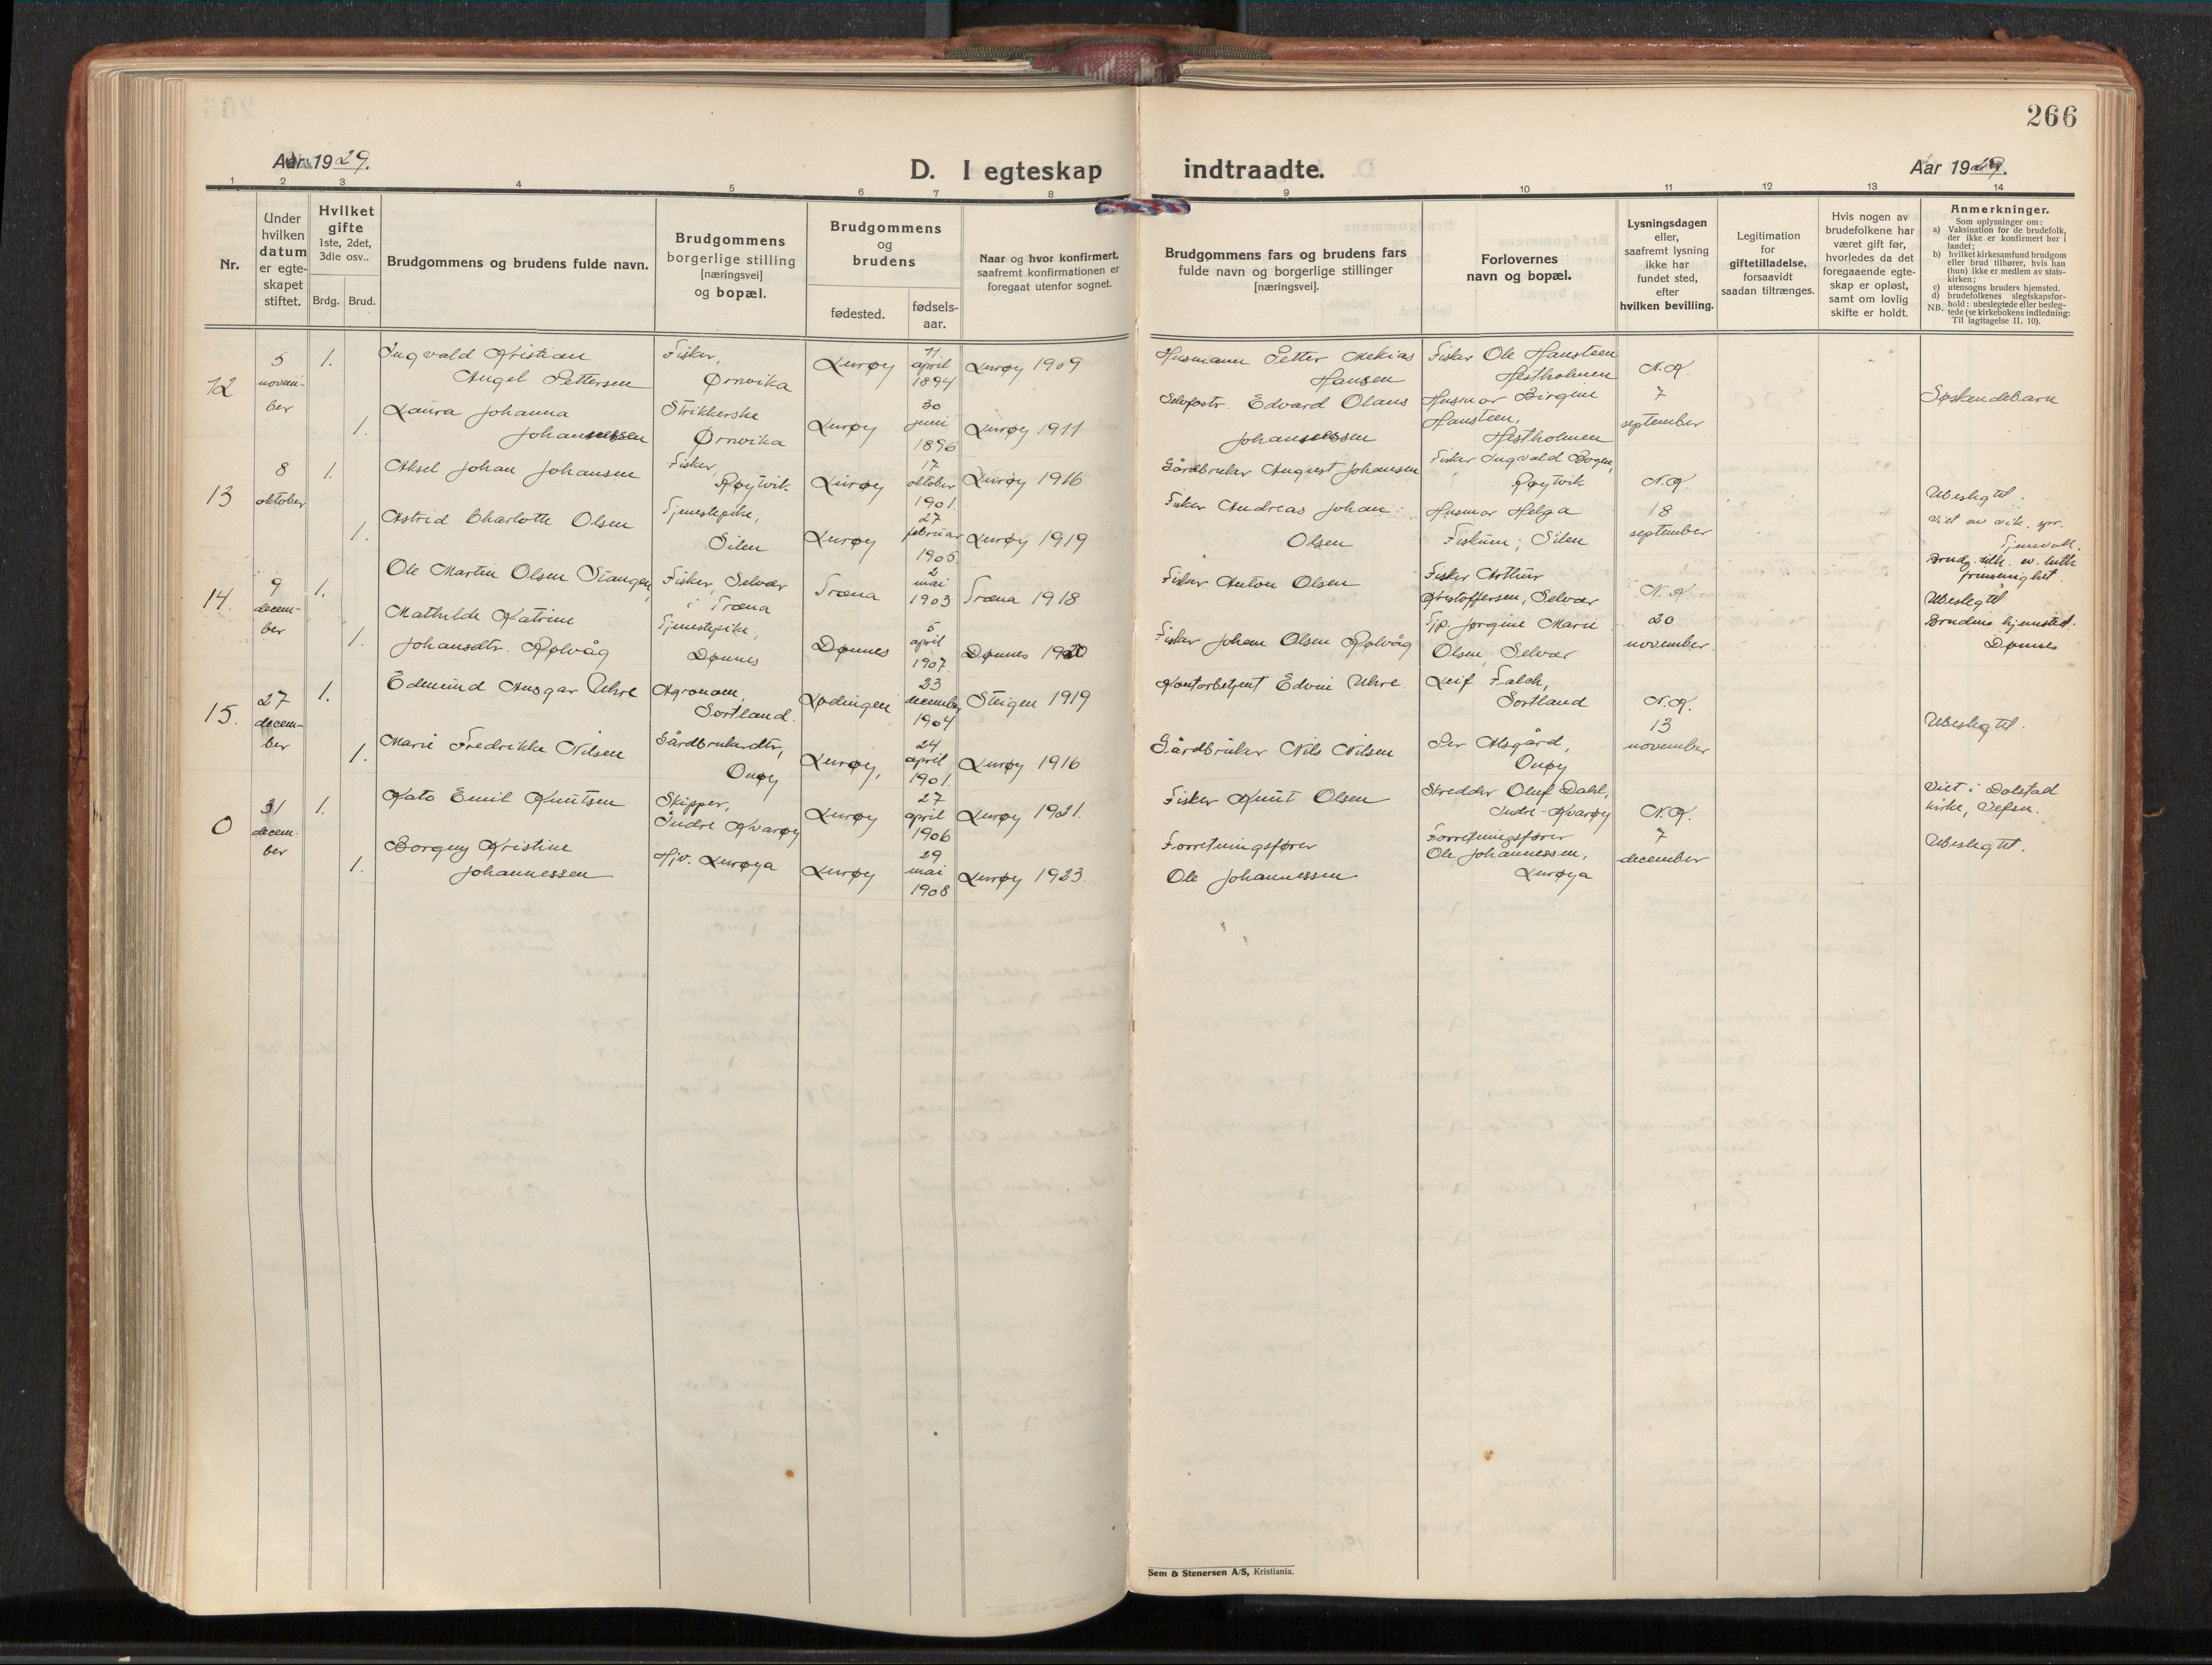 266
Aar 1929.
D. I egteskap indtraadte.
Aar 1929.
1 2 3 4 5 6 7 8 9 10 11 12 13 14
Nr.
Under
hvilken
datum
er egte-
skapet
stiftet.
Hvilket
gifte
1ste, 2det,
3die osv..
Brdg. Brud.
Brudgommens og brudens fulde navn.
Brudgommens
borgerlige stilling
[næringsvei]
og bopæl.
Brudgommens
og
brudens
fødested.
fødsels-
aar.
Naar og hvor konfirmert,
saafremt konfirmationen er
foregaat utenfor sognet.
Brudgommens fars og brudens fars
fulde navn og borgerlige stillinger
[næringsvei].
Forlovernes
navn og bopæl.
Lysningsdagen
eller,
saafremt lysning
ikke har
fundet sted,
efter
hvilken bevilling.
Legitimation
for
giftetilladelse,
forsaavidt
saadan tiltrænges.
Hvis nogen av
brudefolkene har
været gift før,
hvorledes da det
foregaaende egte-
skap er opløst,
samt om lovlig
skifte er holdt.
Anmerkninger.
Som oplysninger om:
a) Vaksination for de brudefolk,
der ikke er konfirmert her i
landet;
b) hvilket kirkesamfund brudgom
eller brud tilhører, hvis han
(hun) ikke er medlem av stats-
kirken;
c) utensogns bruders hjemsted.
d) brudefolkenes slegtskapsfor-
hold: ubeslegtede eller besleg-
tede (se kirkebokens indledning:
NB. Til iagttagelse II. 10).
12
5
novem-
ber
1.
Ingvald Kristian
Angel Pettersen
Fisker,
Ørnvika
Lurøy
11
april
1894
Lurøy 1909
Husmann Petter Mekias
Hansen
Fisker Ole Hansteen
Hestholmen
N.K.
7
september
Søskendebarn
1.
Laura Johanna
Johannessen
Strikkerske
Ørnvika
Lurøy
30
juni
1896
Lurøy 1911
Selvfostr. Edvard Olaus
Johannessen
Husmor Birgine
Hansteen,
Hestholmen
13
8
oktober
1.
Aksel Johan Johansen
Fisker,
Røytvik
Lurøy
17
oktober
1901.
Lurøy 1916
Gårdbruker August Johansen
Fisker Ingvald Bogen,
Røytvik
N.K.
18
september
Ubeslegtet.
Viet av vik. spr.
Tjensvoll.
1.
Astrid Charlotte Olsen
Tjenestepike,
Silen
Lurøy
27
februar
1905.
Lurøy 1919
Fisker Andreas Johan
Olsen
Husmor Helga
Fiskum, Silen
14.
9
decem-
ber
1.
Ole Martin Olsen Stangen
Fisker, Selvær
i Træna
Træna
2
mai
1903
Træna 1918
Fisker Anton Olsen
Fisker Arthur
Kristoffersen, Selvær
N.K.
20
november.
Brudg. tilh. ev. luth
frimenighet.
Ubeslegtet
Brudens hjemsted.
Dønnes
1.
Mathilde Katrine
Johansdtr. Rølvåg
Tjenestepike,
Dønnes
Dønnes
5
april
1907.
Dønnes 1920
Fisker Johan Olsen Rølvåg
Tjp. Jørgine Marie
Olsen, Selvær
15.
27
decem-
ber
1.
Edmund Ansgar Uhre
Agronom,
Sortland.
Lødingen
23
december
1904
Steigen 1919
Kontorbetjent Edvin Uhre.
Leif Falch,
Sortland
N.K.
13
november
Ubeslegtet.
1.
Marie Fredrikke Nilsen
Gårdbrukerdtr,
Onøy
Lurøy,
24
april
1901.
Lurøy 1916
Gårdbruker Nils Nilsen
Per Alsgård,
Onøy
0
31
decem-
ber
1.
Kato Emil Knutsen
Skipper,
Indre Kvarøy
Lurøy
27
april
1906
Lurøy 1921.
Fisker Knut Olsen
Skredder Oluf Dahl,
Indre-Kvarøy
N.K.
7
december
Viet i Dolstad
kirke, Vefsn.
Ubeslegtet.
1.
Borgny Kristine
Johannessen
Hjv. Lurøya
Lurøy
29
mai
1908
Lurøy 1923.
Forretningsfører
Ole Johannessen
Forretningsfører
Ole Johannessen,
Lurøya
Sem & Stenersen A/S, Kristiania.